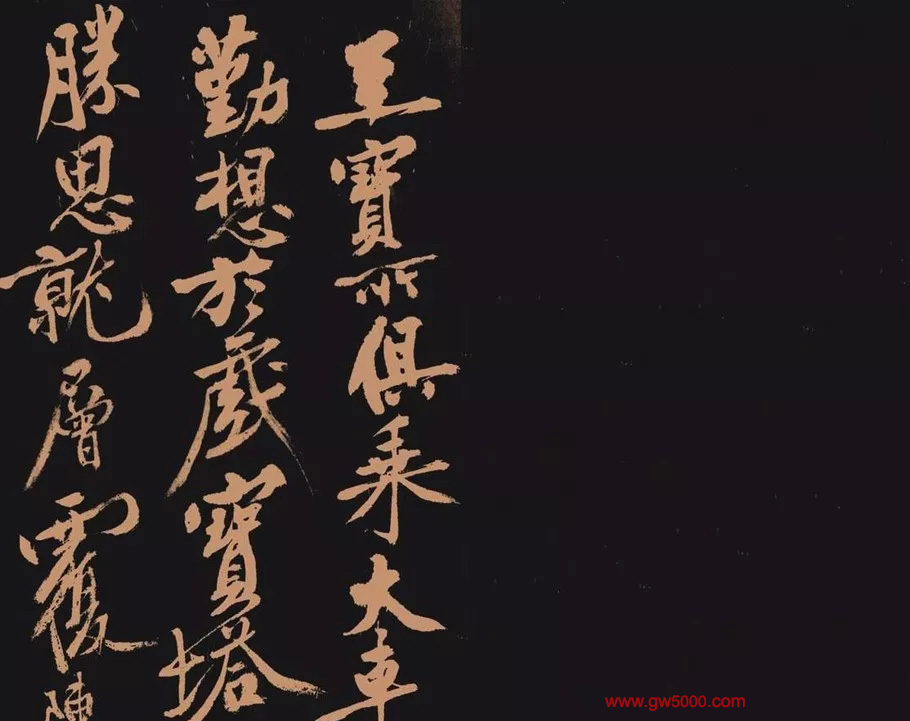 至寶所俱乘大車
勤想於戲寶塔
勝思就層覆
www.gw5000.com